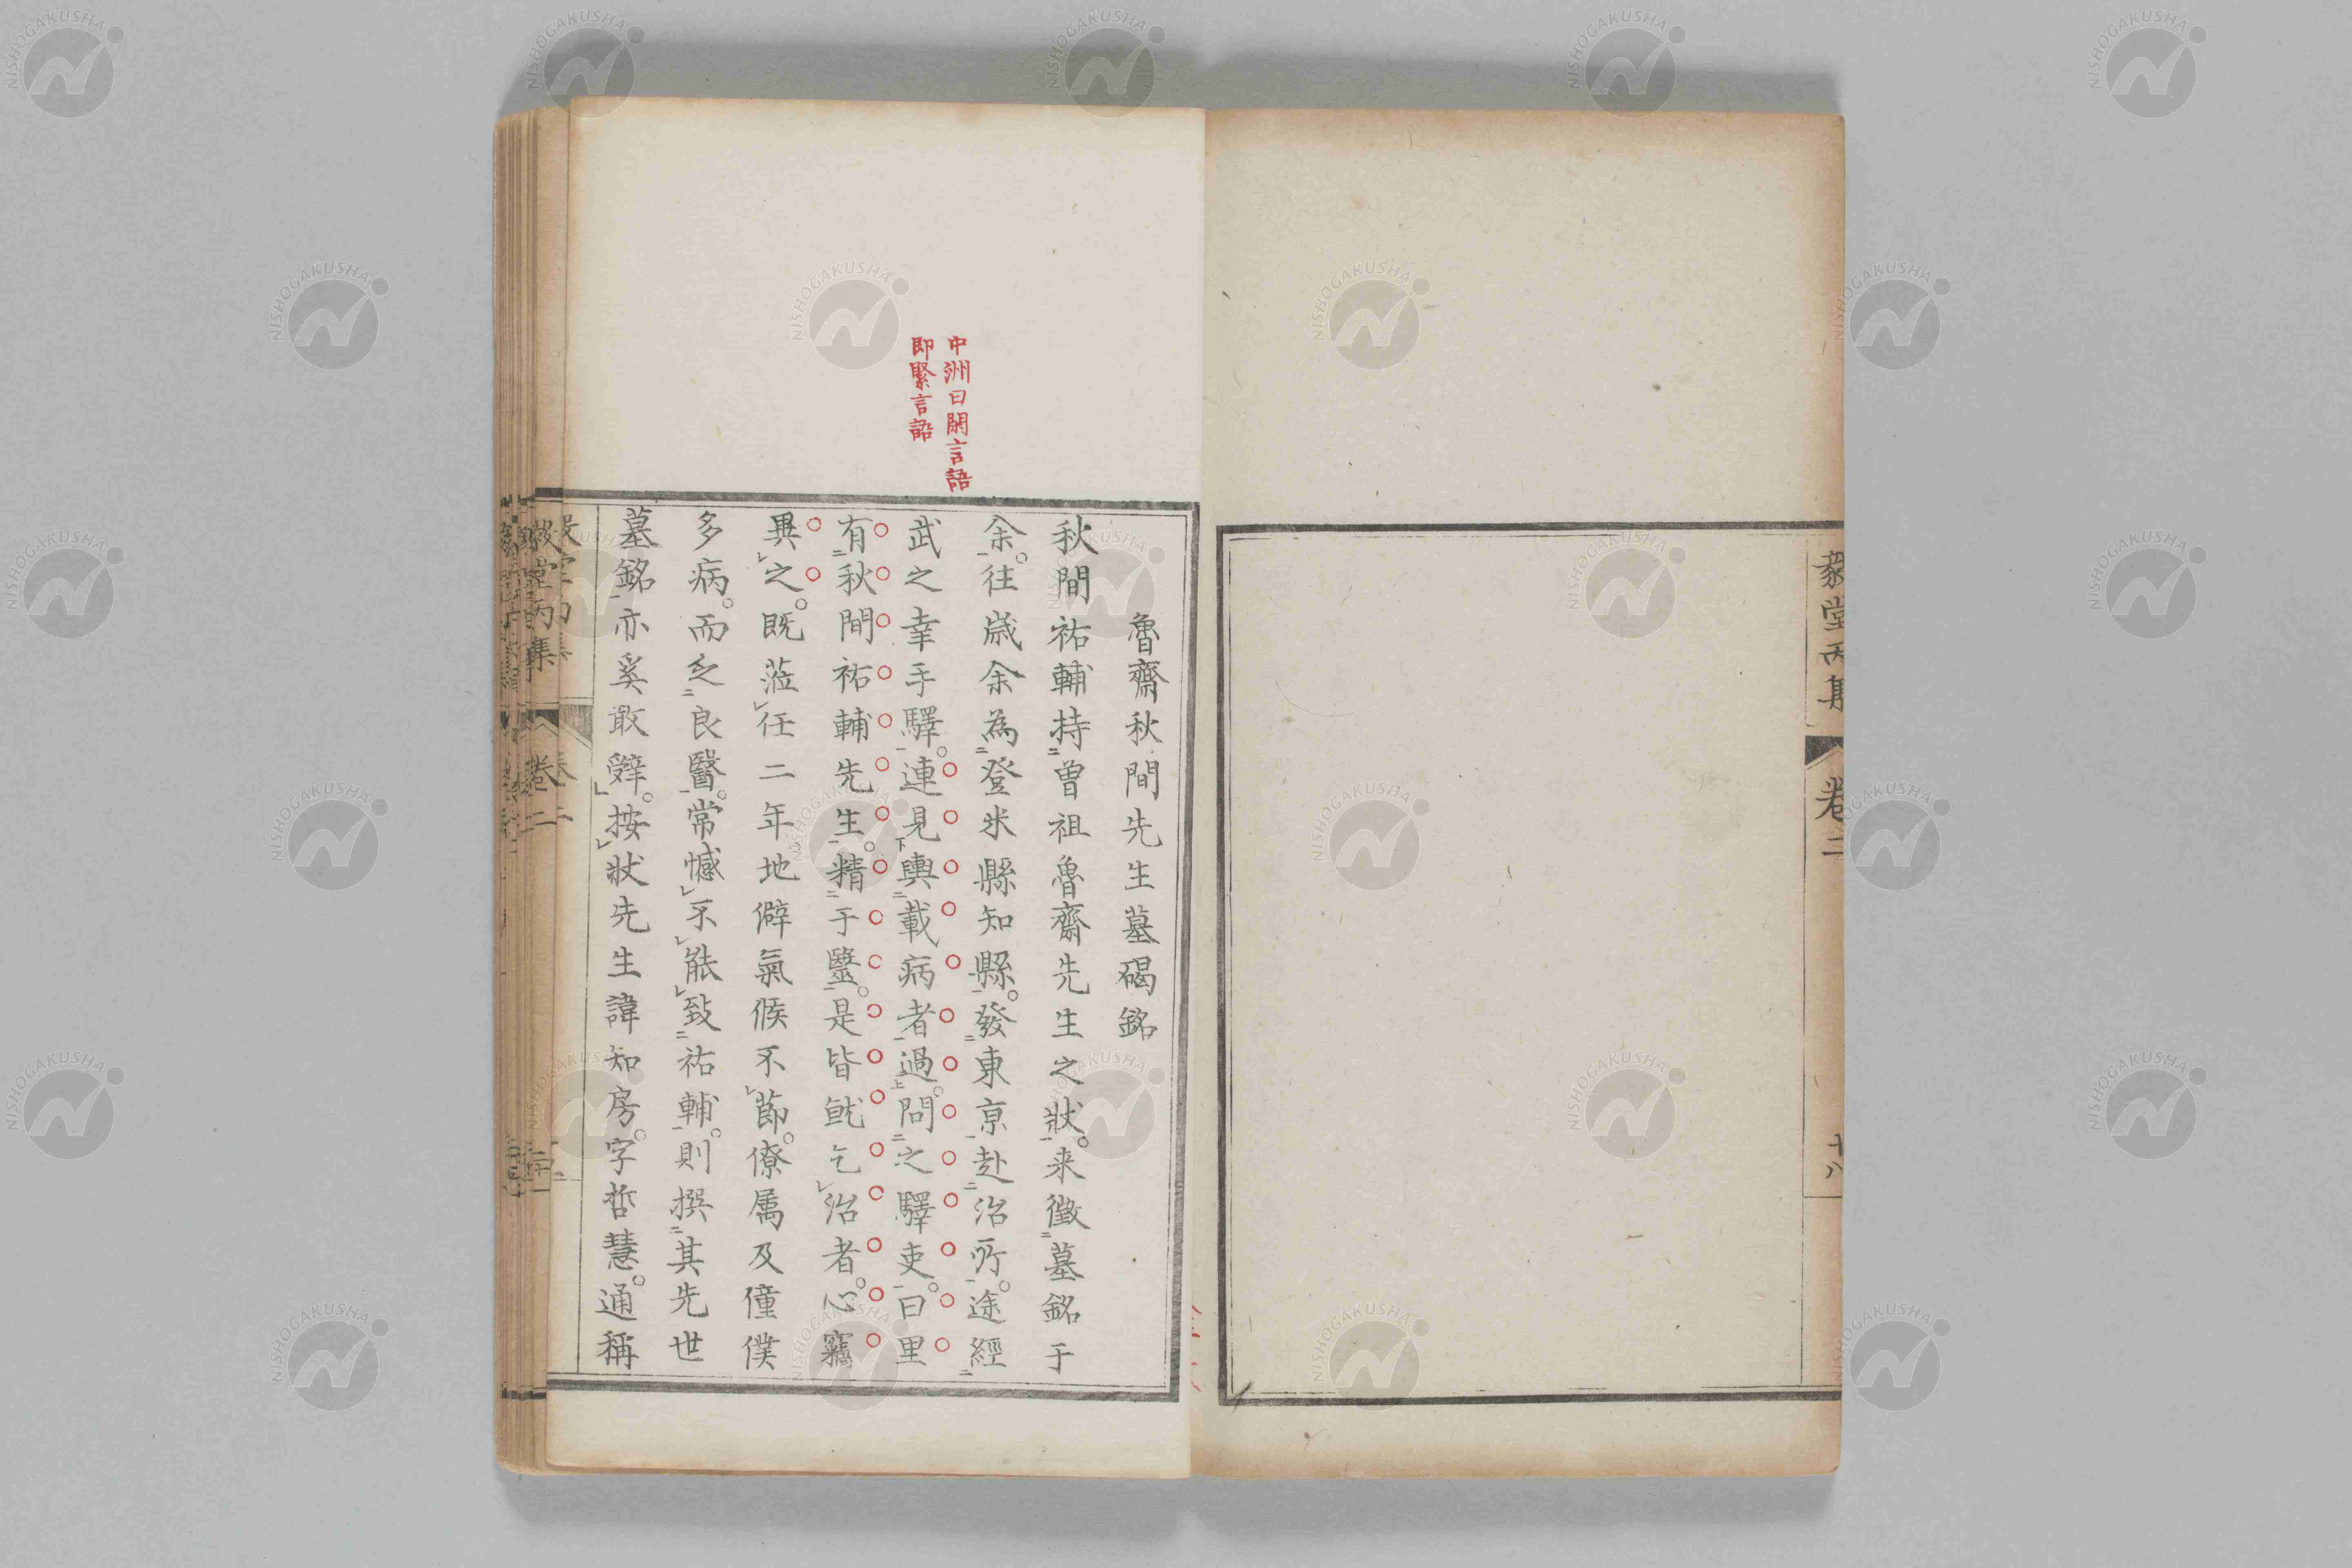 毅堂丙集
卷二
十八
中洲曰閑言語
即緊言語
魯齋秋間先生墓碣銘
秋間祐輔持曾祖魯齋先生之狀。来徵墓銘于
余。往歳余為登米縣知縣。發東京赴治所。途經
武之幸手驛。連見輿載病者過。問之驛吏。曰里
有秋間祐輔先生。精于毉。是皆就乞治者。心竊
異之。既涖任二年地僻氣候不節。僚属及僮僕
多病。而乏良醫。常憾不能致祐輔。則撰其先世
墓銘亦奚敢辤。按狀先生諱知房。字哲慧。通稱
NISHOGAKUSHA